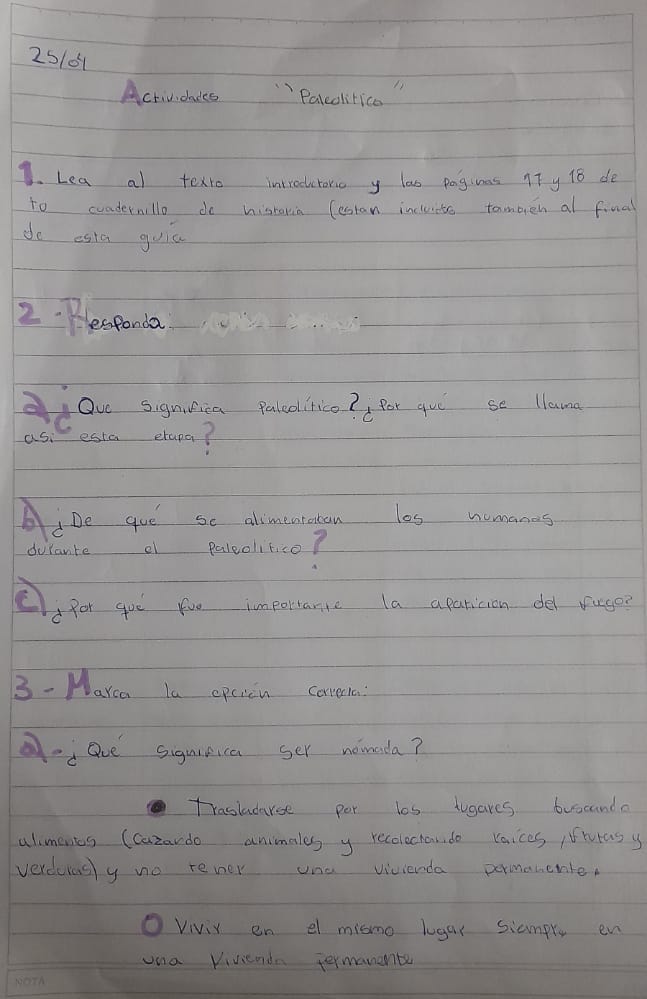 25/04
Actividades "Paleolitico"
1. Lea al texto introductorio y las páginas 17 y 18 de
tu cuadernillo de historia (estan incluidas también al final
de esta guía
2 - Responda:
a) ¿Que significa Paleolítico? ¿Por qué se llama
asi esta etapa?
b) ¿De qué se alimentaban los humanos
durante el Paleolitico?
c) ¿Por qué fue importante la aparicion del fuego?
3 - Marca la opción correcta:
a) - ¿Qué significa ser nómada?
Trasladarse por los lugares buscando
alimentos (Cazando animales y recolectando raíces, frutas y
verduras) y no tener una vivienda permanente.
Vivir en el mismo lugar siempre en
una vivienda permanente
NOTA